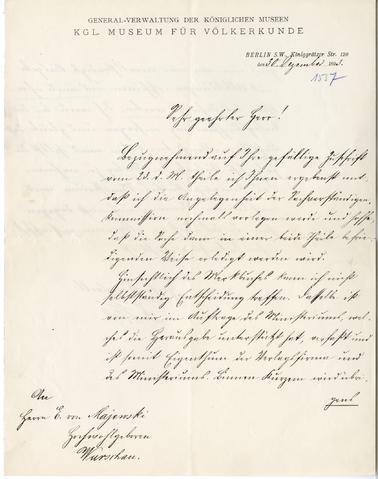 GENERAL-VERWALTUNG DER KÖNIGLICHEN MUSEEN
KGL. MUSEUM FÜR VÖLKERKUNDE
BERLIN S.W., Königgrätzer Str. 120
den Dezember 189
1557
Sehr geehrter Herr!
Bezugnehmend auf Ihre gefällige Zuschrift
vom 22. d. M. theile ich Ihnen ergebenst mit,
daß ich die Angelegenheit der Sachverständigen-
kommission nochmals vorlegen werde und hoffe,
daß die Sache dann in einer beide Theile befrie-
digenden Weise erledigt werden wird.
Hinsichtlich des Merkbuches kann ich nicht
selbstständig Entscheidung treffen. Dasselbe ist
von mir im Auftrage des Ministeriums, wel-
ches die Herausgabe unterstützt hat, verfaßt und
ist somit Eigenthum der Verlagsfirma und
des Ministeriums. Binnen Kurzem wird übri-
gens
An
Herrn E. von Majewski
Hochwohlgeboren
Warschau.